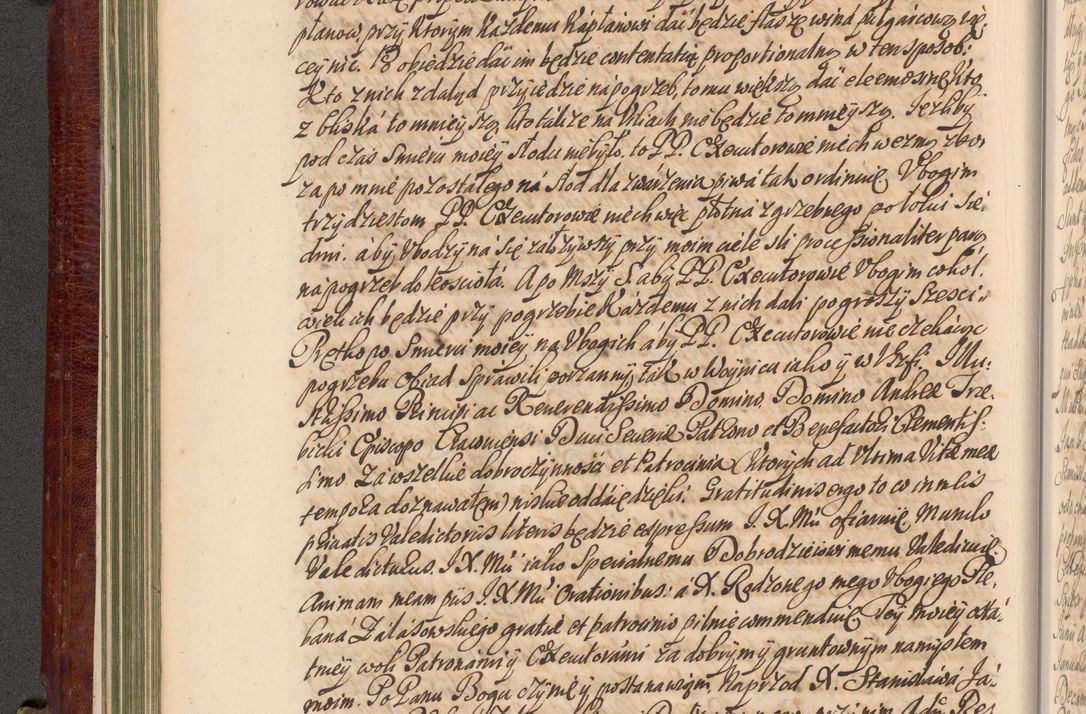 planow, przy ktorym każdemu kapłanowi dać będzie flaszę wina pułgarcową wię,
cey nic. Po obiedzie dać im będzie contentatią proportionalną w ten sposob:
Kto z nich z daleka przyiedzie na pogrzeb, to mu większą dać eleemosynę, kto
z bliska to mnieyszą, kto także na Wsiach nie będzie to mnieyszą. Jezliby
pod czas Smierci moiey słodu nie było, to PP. Executorowie niech wezmą zboż
za po mnie pozostałego na słod dla zwarzenia piwa tak ordinuię. Vbogim
trzydziestom PP. Executorowie niech więc płotna zgrzebnego po łokci sie,
dmi. aby Vbodzy na się zażywszy przy moim ciele sli processionaliter parą
na pogrzeb do koscioła. A po Mszy S. aby PP. Executorowie Vbogim cokol,
wiek ich będzie przy pogrzebie każdemu z nich dali po groszy szesci.
Prętko po Smierci moiey na Vbogich aby PP. Executorowie nie czekaiąc
pogrzebu obiad sprawili porzanny, tak w Woynicu iako y w Illu,
strissimo Principi ac Reverendissimo Domino, Domino Andreæ Trze,
bicki Episcopo Cracoviensi Duci Severiæ Patrono et Benefactori Clementis,
simo Za wszelkie dobroczynnosci et Patrocinia (ktorych ad Vltima Vitæ meæ
tempora doznawałem) nisko oddaię dzięki. Gratitudinis ergo to co in aliis
privatis Valedictoriis literis będzie expressum J. X. Mći ofiaruię, Mundo
Valedicturus. J. X. Mći iako Specialnemu Dobrodzieiowi memu Valedicuię,
Animam meam piis J. X. Mći Orationibus: a X. Rodzonego mego Vbogiego Ste,
bana Zalasowskiego gratiæ et patrocinio pilnie commenduię. Tey moiey osta,
tniey woli Patronami y Executorami za dobrym y gruntownym namysłem
moim. Po Panu Bogu czynię y postanawiam, Naprzod X. Stanisława Ja,